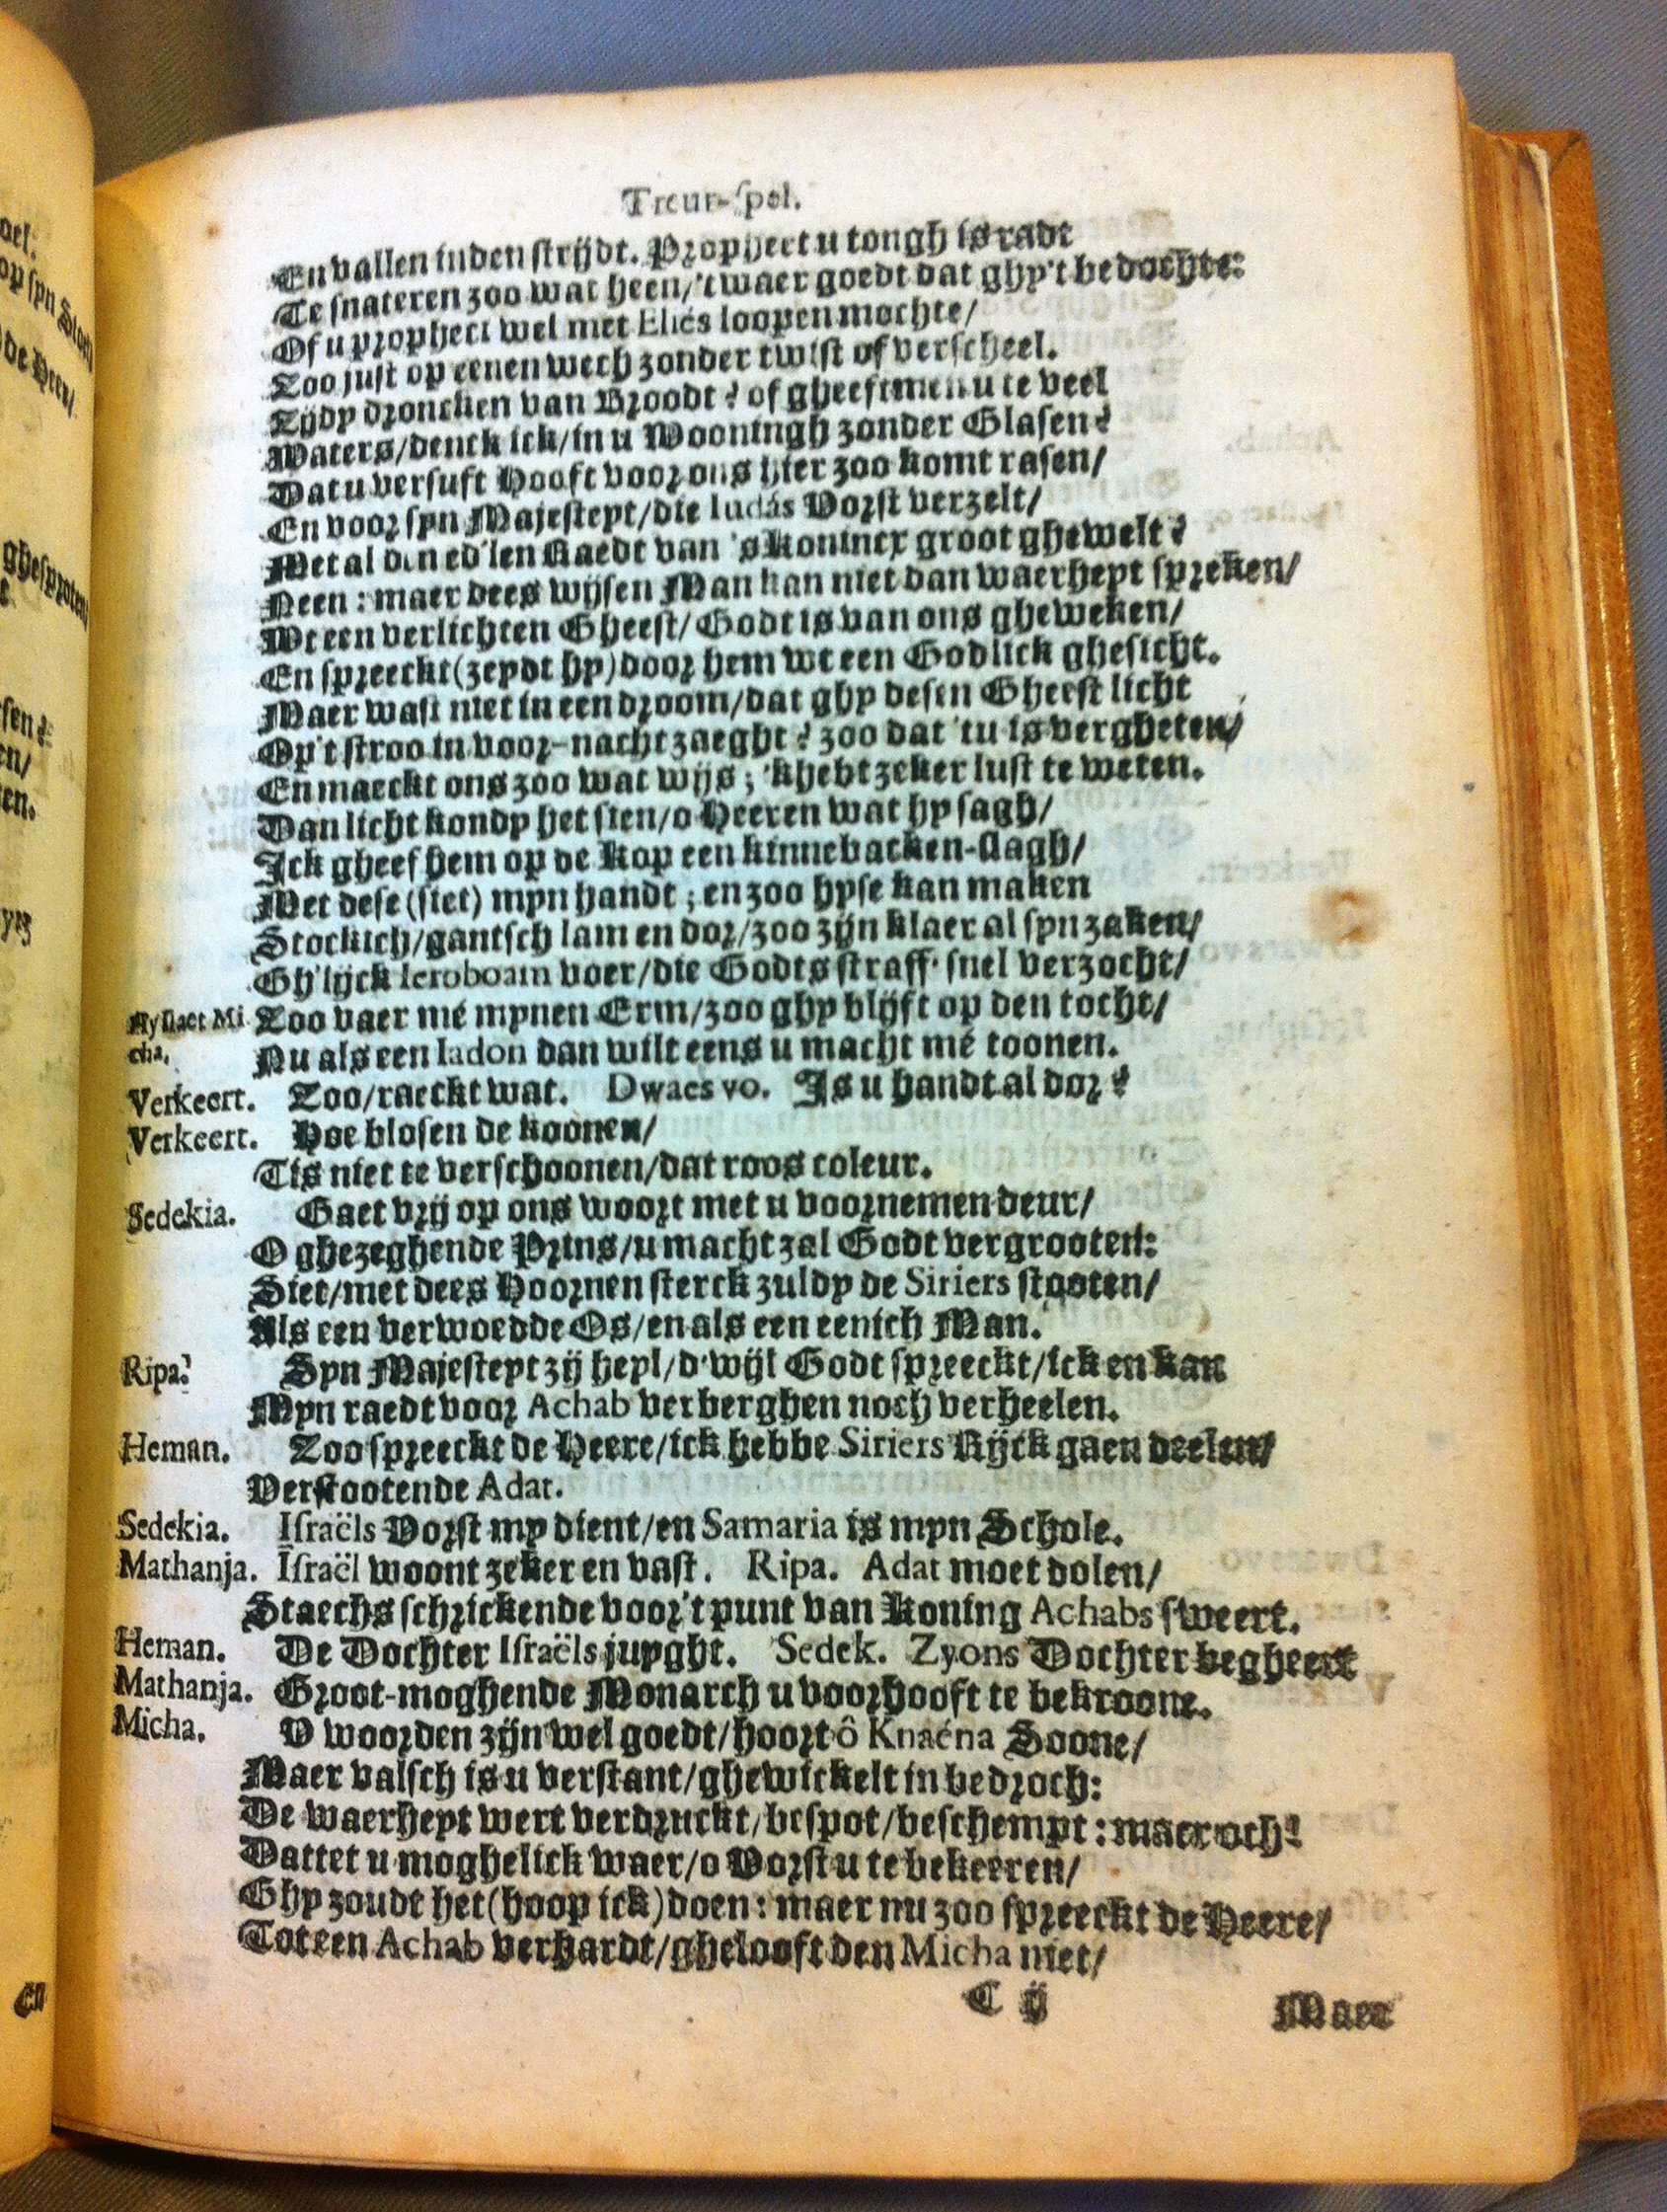 Treur-spel.
En vallen inden strijdt. Propheet u tongh is radt
Te snateren zoo wat heen/'t waer goedt dat ghy't bedochte:
Of u propheci wel met Eliés loopen mochte/
Zoo just op eenen wech zonder twist of verscheel.
Zijdy droncken van Broodt? of gheeftmen u te veel
Waters/denck ick/in u Wooningh zonder Glasen?
Dat u versuft Hooft voor ons hier zoo komt rasen/
En voor syn Majesteyt/die Iudás Vorst verzelt/
Met al den ed'len Raedt van 's Konincx groot ghewelt?
Neen: maer dees wijsen Man kan niet dan waerheyt spreken/
Wt een verlichten Gheest/Godt is van ons gheweken/
En spreeckt (zeydt hy) door hem wt een Godlick ghesicht.
Maer wast niet in een droom/dat ghy desen Gheest licht
Op't stroo in voor-nacht zaeght? zoo dat 'tu is vergheten/
En maeckt ons zoo wat wijs; 'khebt zeker lust te weten.
Dan licht kondy het sien/o Heeren wat hy sagh/
Ick gheef hem op de Kop een kinnebacken-slagh/
Met dese (siet) myn handt; en zoo hyse kan maken
Stockich/gantsch lam en dor/zoo zijn klaer al syn zaken/
Gh'lijck Ieroboam voer/die Godts straff' snel verzocht/
Hy slaet Mi Zoo vaer mé mynen Erm/zoo ghy blijft op den tocht/
cha. Nu als een Iadon dan wilt eens u macht mé toonen.
Verkeert. Zoo/raeckt wat. Dwaes vo. Is u handt al dor?
Verkeert. Hoe blosen de koonen/
Tis niet te verschoonen/dat roos coleur.
Sedekia. Gaet vrij op ons woort met u voornemen deur/
O ghezeghende Prins/u macht zal Godt vergrooten:
Siet/met dees Hoornen sterck zuldy de Siriers stooten/
Als een verwoedde Os/en als een eenich Man.
Ripa. Syn Majesteyt zij heyl/d'wijl Godt spreeckt/ick en kan
Myn raedt voor Achab verberghen noch verheelen.
Heman. Zoo spreeckt de Heere/ick hebbe Siriers Rijck gaen deelen/
Verstootende Adat.
Sedekia. Israëls Vorst my dient/en Samaria is myn Schole.
Mathanja. Israël woont zeker en vast. Ripa. Adat moet dolen/
Staechs schrickende voor't punt van Koning Achabs sweert.
Heman. De Dochter Israëls juyght. Sedek. Zyons Dochter begheert
Mathanja. Groot-moghende Monarch u voorhooft te bekroone.
Micha. V woorden zijn wel goedt/hoort ô Knaéna Soone/
Maer valsch is u verstant/ghewickelt in bedroch:
De waerheyt wert verdruckt/bespot/beschempt: maer och!
Dattet u moghelick waer/o Vorst u te bekeeren/
Ghy zoudt het (hoop ick) doen: maer nu zoo spreeckt de Heere/
Tot een Achab verhardt/ghelooft den Micha niet/
C ij Maer